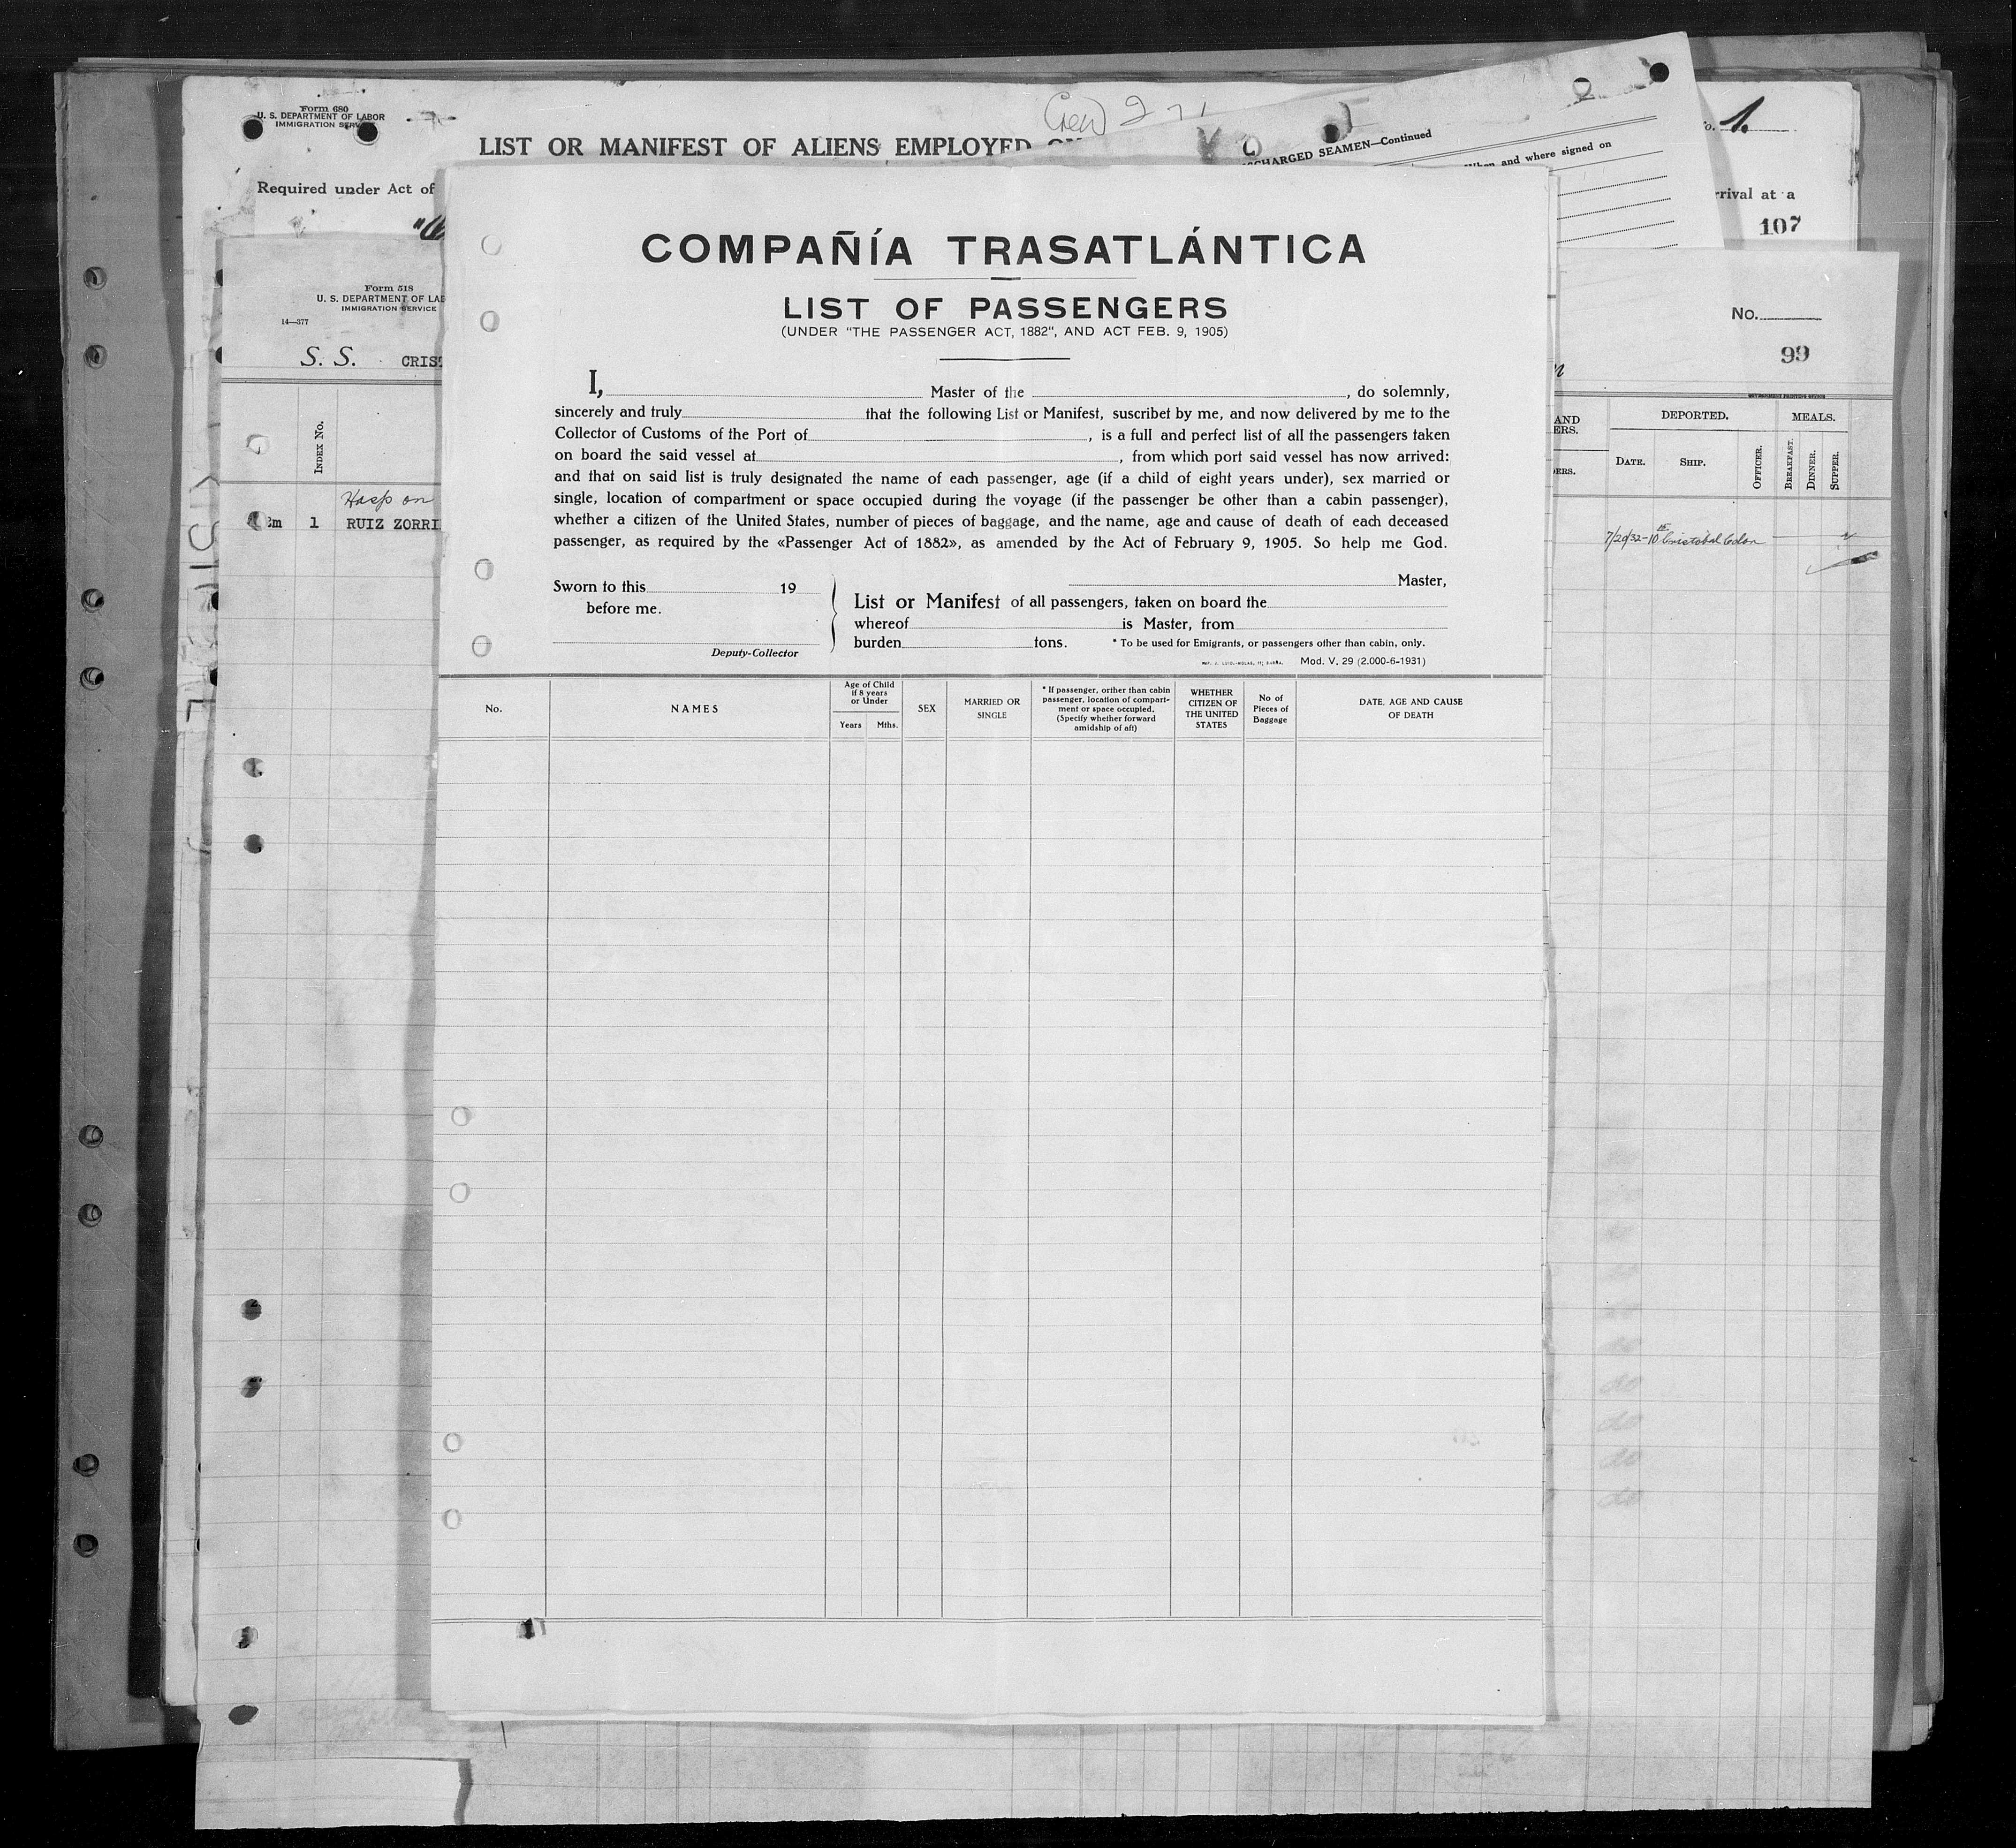 Form 680
U. S. DEPARTMENT OF LABOR
IMMIGRATION SERVICE
LIST OR MANIFEST OF ALIENS EMPLOYED
Required under Act of
SCHARGED SEAMEN—Continued
When and where signed on
1.
rrival at a
107
Form 518
U. S. DEPARTMENT OF LAB
IMMIGRATION SERVICE
14—377
S. S. CRIST
INDEX No.
Hosp on
2m 1 RUIZ ZORRI
No.
99
AND
ERS.
DERS.
DEPORTED.
MEALS.
DATE.
SHIP.
OFFICER.
BREAKFAST.
DINNER.
SUPPER.
7/20/32-10 Cristobal Colon
COMPAÑÍA TRASATLÁNTICA
LIST OF PASSENGERS
(UNDER "THE PASSENGER ACT, 1882", AND ACT FEB. 9, 1905)
I, Master of the , do solemnly,
sincerely and truly that the following List or Manifest, suscribet by me, and now delivered by me to the
Collector of Customs of the Port of , is a full and perfect list of all the passengers taken
on board the said vessel at , from which port said vessel has now arrived:
and that on said list is truly designated the name of each passenger, age (if a child of eight years under), sex married or
single, location of compartment or space occupied during the voyage (if the passenger be other than a cabin passenger),
whether a citizen of the United States, number of pieces of baggage, and the name, age and cause of death of each deceased
passenger, as required by the «Passenger Act of 1882», as amended by the Act of February 9, 1905. So help me God.
Master,
Sworn to this 19
before me.
Deputy-Collector
List or Manifest of all passengers, taken on board the
whereof is Master, from
burden tons. * To be used for Emigrants, or passengers other than cabin, only.
Mod. V. 29 (2.000-6-1931)
No.
NAMES
Age of Child
if 8 years
or Under
Years Mths.
SEX
MARRIED OR
SINGLE
* If passenger, orther than cabin
passenger, location of compart-
ment or space occupied.
(Specify whether forward
amidship of aft)
WHETHER
CITIZEN OF
THE UNITED
STATES
No of
Pieces of
Baggage
DATE, AGE AND CAUSE
OF DEATH
do
do
do
do